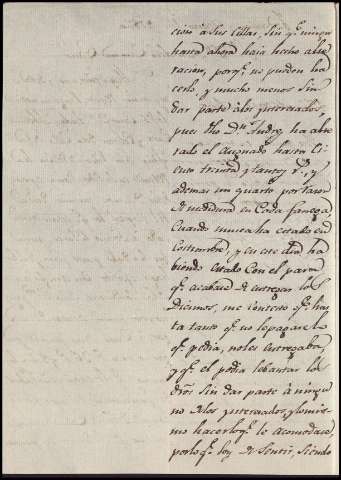 cion â sus cillas, sin qᵉ ningᵒ
hasta ahora haia hecho alte
racion, porqᵉ no pueden ha
cerlo, y mucho menos sin
dar parte âlos Ynteresados,
pues dhõ Dⁿ Andrs, ha alte
rado el hasta Ci
ento treinta, y tantos rˢ, y
ademas un quarto por razon
de medidura en Cada fanega,
Cuando nunca ha estado en
costumbre, y en este dia ha
biendo estado Con el para
qᵉ acabase de entregar los
Diezmos, me Contesto qᵉ has
ta tanto qᵉ no le pagase lo
qᵉ pedia, no les entregaba,
y qᵉ el podia lebantar los
dr̃os sin dar parte â ningu
no delos Ynteresados, y lo mis
mo hacerlo qᵉ le acomodase,
por lo qᵉ soy de Sentir, siendo